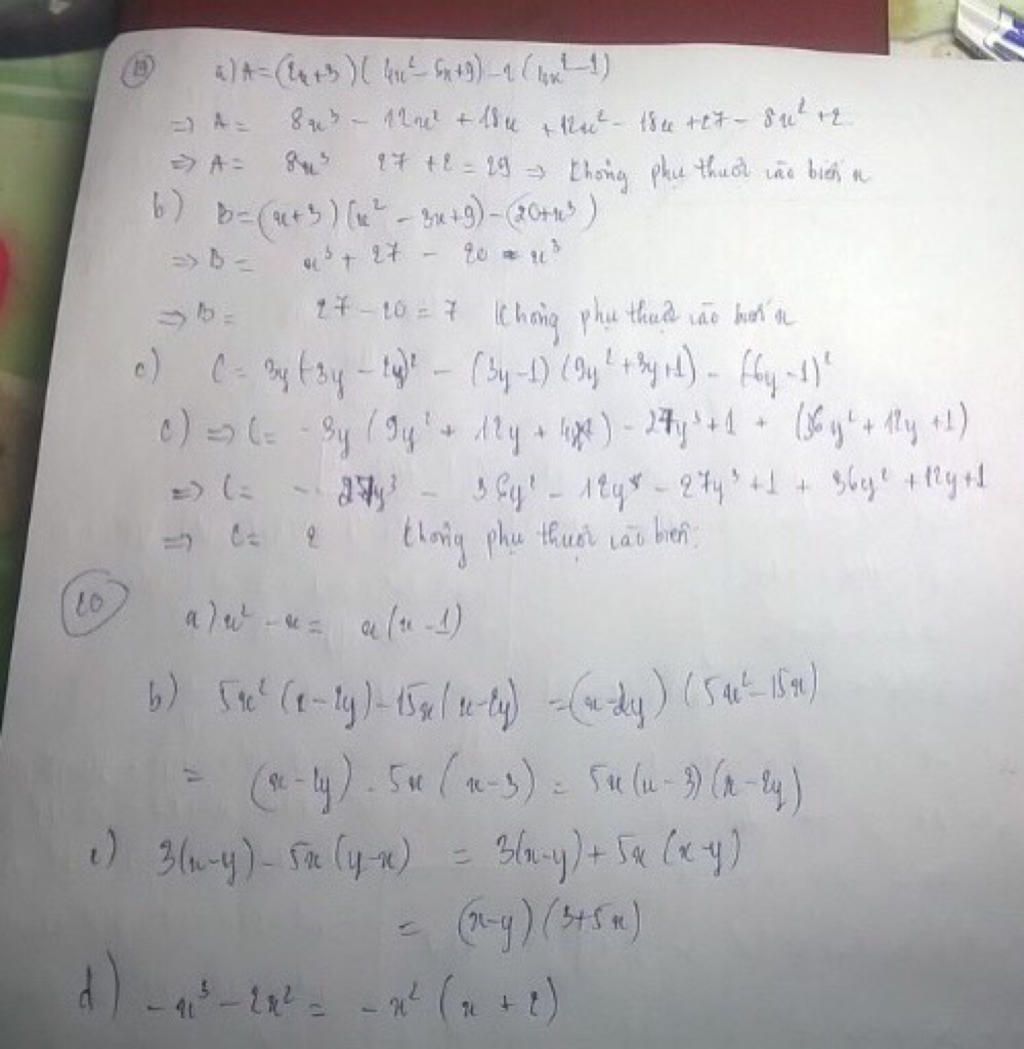 19 a) A = (2x+3)(4x² - 6x+9) - 2(4x² - 1)
=> A = 8x³ - 12x² + 18x + 12x² - 18x + 27 - 8x² + 2
=> A = 8x³ 27 + 2 = 29 => Không phụ thuộc vào biến x
b) B = (x+3)(x² - 3x+9) - (20+x³)
=> B = x³ + 27 - 20 - x³
=> B = 27 - 20 = 7 Không phụ thuộc vào biến x
c) C = 3y(-3y - 2y)² - (3y-1)(9y² + 3y+1) - (-6y - 1)²
c) => C = - 3y (9y² + 12y + 4) - 27y³ + 1 + (36y² + 12y + 1)
=> C = - 27y³ - 36y² - 12y - 27y³ + 1 + 36y² + 12y + 1
=> C = 2 Không phụ thuộc vào biến.
20 a) x² - x = x(x - 1)
b) 5x² (x-2y) - 15x(x-2y) = (x-2y)(5x² - 15x)
= (x-2y) . 5x (x-3) = 5x(x-3)(x-2y)
c) 3(x-y) - 5x(y-x) = 3(x-y) + 5x(x-y)
= (x-y)(3+5x)
d) -x³ - 2x² = -x² (x + 2)